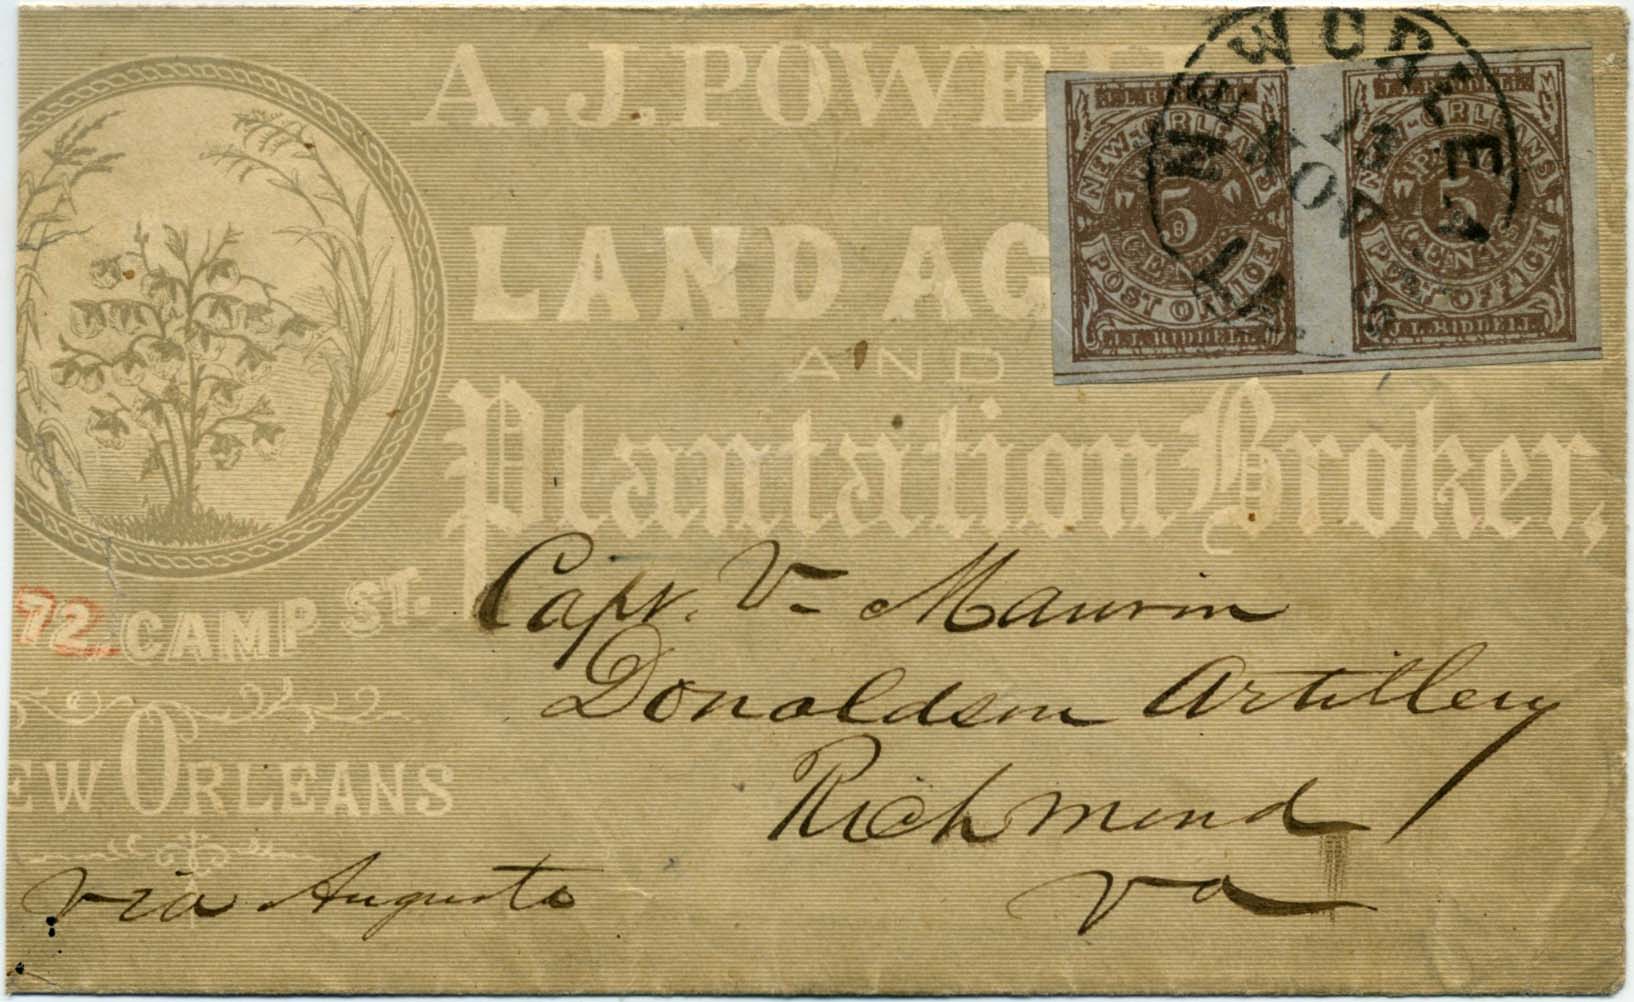 A. J. POWE
LAND AG
AND
Plantation Broker,
72 CAMP ST.
EW ORLEANS
J.L. RIDDELL
NEW-ORLEANS
5
CENTS
POST OFFICE
J.L. RIDDELL
J.L. RIDDELL
NEW-ORLEANS
5
CENTS
POST OFFICE
J.L. RIDDELL
NEW ORLEANS
15
NOV
Capt. V- Maurin
Donaldson Artillery
Richmond
Va
via Augusta